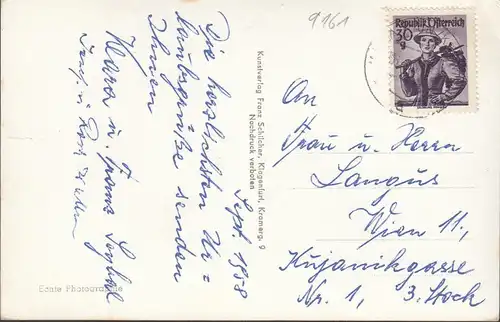 9161
Republik Österreich
30
g
Sept. 1958
Die herzlichsten Ur=
laubsgrüße senden
Ihnen
Klara u. Franz
Echte Photographie
Kunstverlag Franz Schilcher, Klagenfurt, Kramerg. 9
Nachdruck verboten
An
Frau u. Herrn
Langus
Wien 11.,
Kujanikgasse
Nr. 1, 3. Stock